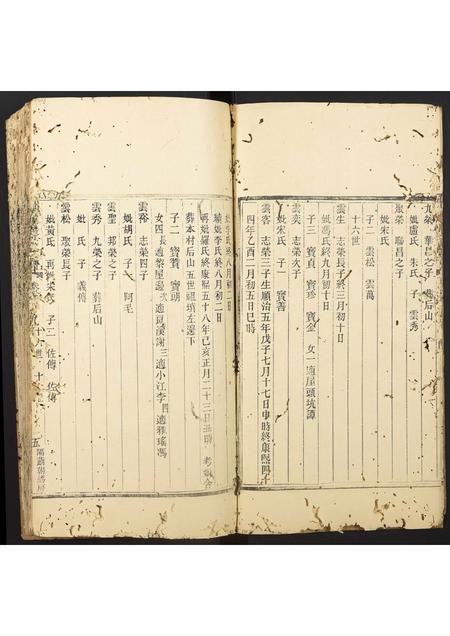 九榮 華昌之子 葬后山
妣盧氏 朱氏 子 雲秀
聚榮 聯昌之子
妣宋氏
子二 雲松 雲萬
十六世
雲生 志榮長子終三月初十日
妣馮氏終九月初十日
子三 寶貞 寶珍 寶金 女一適屋頭坑譚
雲奕 志榮次子
妣宋氏 子一 寶善
雲客 志榮三子生順治五年戊子七月十七日申時終康熙四十
四年乙酉二月初五日巳時
妣李氏終八月初二日
續妣李氏終八月初二日
再妣羅氏終康熙五十八年己亥正月二十三日丑時 考妣合
葬本村后山五世祖墳左邊下
子二 寶贊 寶朝
女四長適黎屋邊 次適莨溪謝 三適小江李 四適雅瑤馮
雲裕 志榮四子
妣胡氏 子 阿毛
雲聖 邦榮之子
雲秀 九榮之子 葬后山
妣 氏 子 義傳
雲松 聚榮長子
妣黃氏 再 宋 子二 佐傳 佐傳
十六世 十 五 隔 房